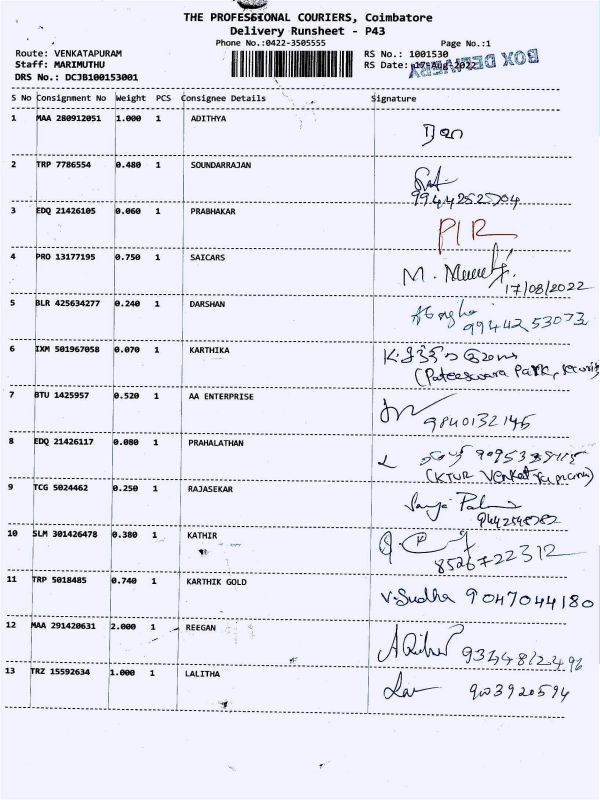 THE PROFESSIONAL COURIERS, Coimbatore
Delivery Runsheet - P43
Phone No.:0422-3505555 Page No.:1
Route: VENKATAPURAM RS No.: 1001530
Staff: MARIMUTHU RS Date: 17-Aug-2022 BOX DELIVERY
DRS No.: DCJB100153001
S No Consignment No Weight PCS Consignee Details Signature
1 MAA 280912051 1.000 1 ADITHYA
2 TRP 7786554 0.480 1 SOUNDARRAJAN
9944252504
3 EDQ 21426105 0.060 1 PRABHAKAR
4 PRO 13177195 0.750 1 SAICARS
M.
17/08/2022
5 BLR 425634277 0.240 1 DARSHAN
99442 53073
6 IXM 501967058 0.070 1 KARTHIKA
(Pateeswara Park, security
7 BTU 1425957 0.520 1 AA ENTERPRISE
9840132145
8 EDQ 21426117 0.080 1 PRAHALATHAN
(KTUR Venkatramana)
9 TCG 5024462 0.250 1 RAJASEKAR
10 SLM 301426478 0.380 1 KATHIR
8526722312
11 TRP 5018485 0.740 1 KARTHIK GOLD
V.Sudha 9047044180
12 MAA 291420631 2.000 1 REEGAN
9344812496
13 TRZ 15592634 1.000 1 LALITHA
9003920594